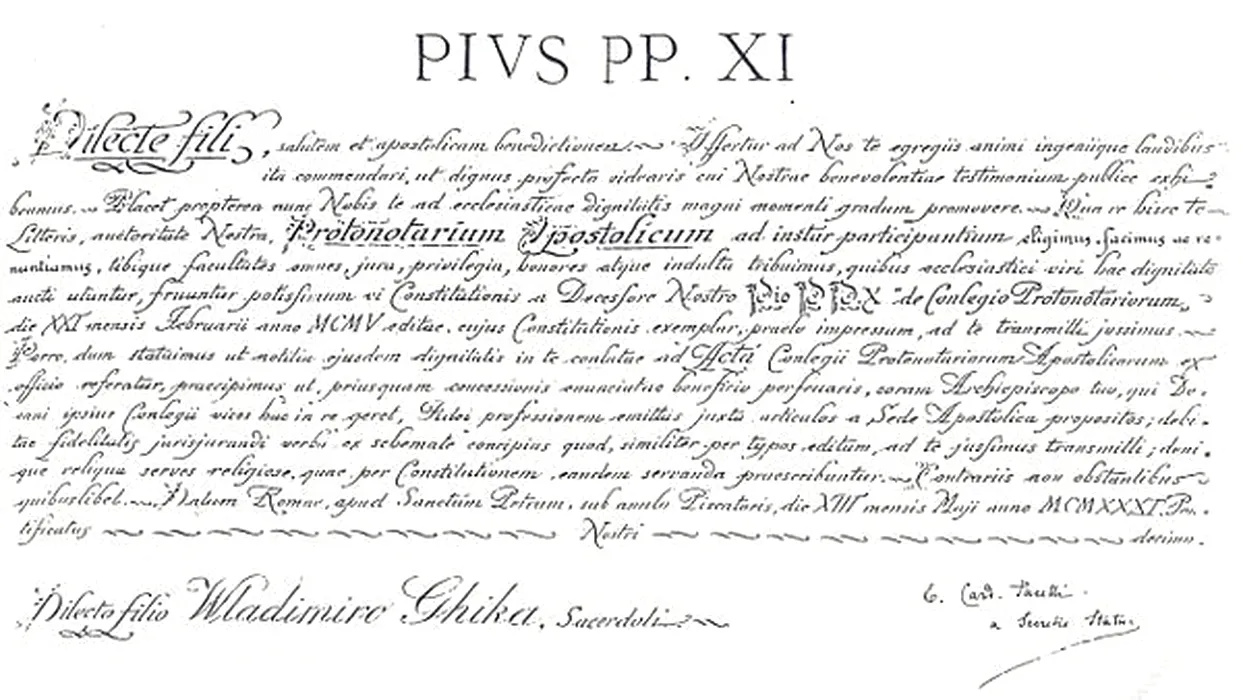 PIVS PP. XI
Dilecte fili, salutem et apostolicam benedictionem. Affertur ad Nos te egregiis animi ingeniique laudibus
ita commendari, ut dignus profecto videaris cui Nostrae benevolentiae testimonium publice exhi-
beamus. Placet propterea nunc Nobis te ad ecclesiasticae dignitatis magni momenti gradum promovere. Qua re hisce te
Litteris, auctoritate Nostra, Protonotarium Apostolicum ad instar participantium eligimus, facimus ac re-
nuntiamus, tibique facultates omnes, jura, privilegia, honores atque indulta tribuimus, quibus ecclesiastici viri hac dignitate
aucti utuntur, fruuntur potissimum vi Constitutionis a Decessore Nostro Pio PP. X de Conlegio Protonotariorum,
die XXI mensis Februarii anno MCMV editae, cujus Constitutionis exemplar, praelo impressum, ad te transmitti jussimus.
Porro, dum statuimus ut notitia ejusdem dignitatis in te conlatae ad Acta Conlegii Protonotariorum Apostolicorum ex
officio referatur, praecipimus ut, priusquam concessionis enunciatae beneficio perfruaris, coram Archiepiscopo tuo, qui De-
cani ipsius Conlegii vices hac in re geret, Fidei professionem emittas juxta articulos a Sede Apostolica propositos; debi-
tae fidelitatis jurisjurandi verba ex schemate concipias quod, similiter per typos editum, ad te jussimus transmitti; deni-
que reliqua serves religiose, quae per Constitutionem eandem servanda praescribuntur. Contrariis non obstantibus
quibuslibet. Datum Romae, apud Sanctum Petrum, sub anulo Piscatoris, die XIII mensis Maji anno MCMXXXI, Pon-
tificatus Nostri decimo.
Dilecto filio Wladimiro Ghika, Sacerdoti
E. Card. Pacelli
a Secretis Status